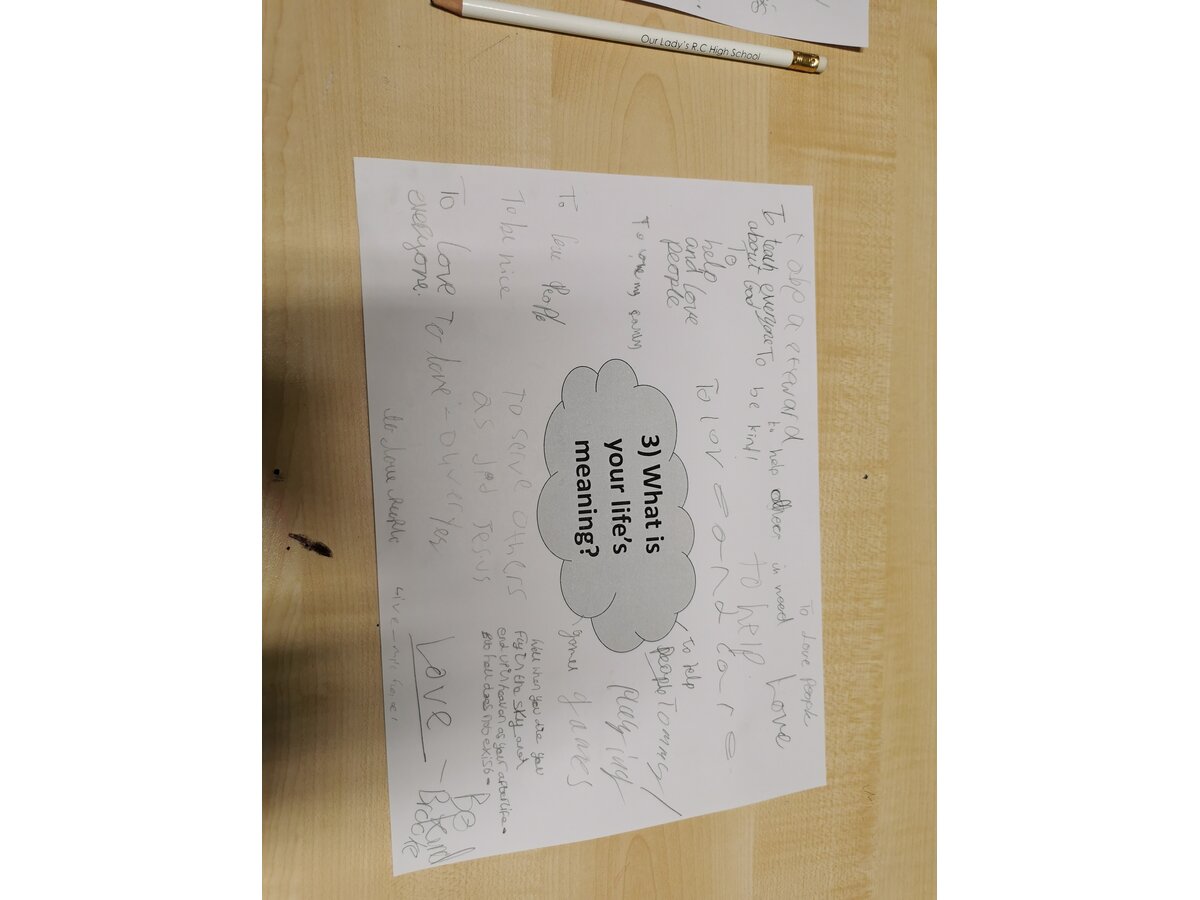 Our Lady's R.C High School
To love people
a steward
To teach everyone
about God
to help others in need
Love
To be kind!
To
help
and love
people
to help
To love and care
To love my family
3) What is
your life's
meaning?
To help
People
Tommy
playing
games
games
To love people
To be nice
To serve others
as did Jesus
Well when you die you
Fly in the sky and
end up in heaven as your afterlife.
But hell does not exist.
To love
everyone.
To love
Love
- Be
Kind
to love people